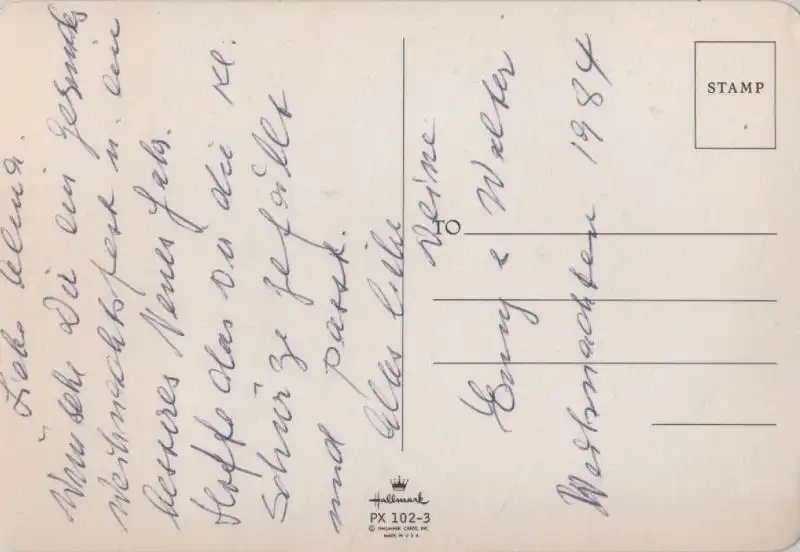 Liebe
Wünsche Dir ein gesundes
Weihnachtsfest u. ein
besseres Neues Jahr.
Hoffe das Dir die kl.
Schürze gefällt
und passt.
Alles liebe
Deine
Emmy & Walter
Weihnachten 1984
STAMP
TO
Hallmark
PX 102-3
© HALLMARK CARDS, INC.
MADE IN U.S.A.